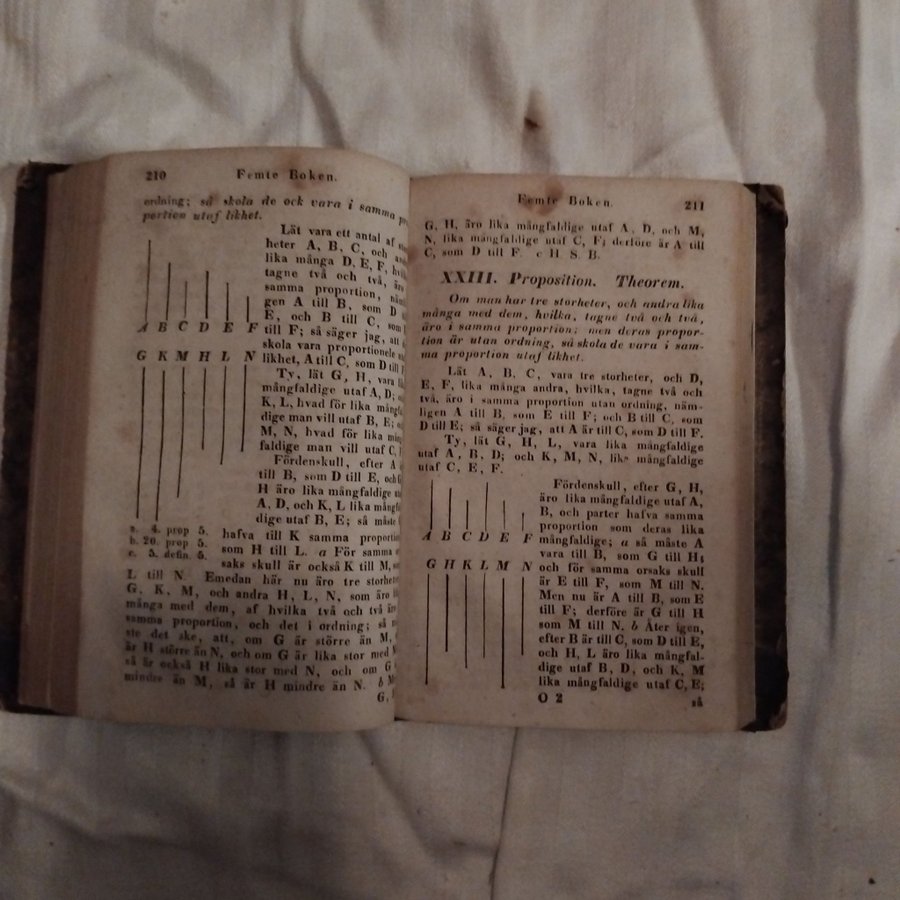 210 Femte Boken.
ordning; så skola de ock vara i samma
portion utaf likhet.
Låt vara ett antal af
heter A, B, C, och
lika många D, E, F,
tagne två och två,
samma proportion,
gen A till B, som D
E, och B till C, som
A B C D E F till F; så säger jag, att
skola vara proportionele
G K M H L N likhet, A till C, som D till
Ty, låt G, H, vara
mångfaldige utaf A, D;
K, L, hvad för lika
dige man vill utaf B, E;
M, N, hvad för lika
faldige man vill utaf C,
Fördenskull, efter A
till B, som D till E, och
H äro lika mångfaldige
A, D, och K, L lika
dige utaf B, E; så måste
a. 4. prop 5. hafva till K samma
b. 20. prop 5. som H till L. a För samma
c. 5. defin. 5. saks skull är också K till M,
L till N. Emedan här nu äro tre
G, K, M, och andra H, L, N, som äro
många med dem, af hvilka två och två
samma proportion, och det i ordning; så
ste det ske, att, om G är större än M,
är H större än N, och om G är lika stor med
så är också H lika stor med N, och om G
mindre än M, så är H mindre än N. b
G,
Femte Boken. 211
G, H, äro lika mångfaldige utaf A, D, och M,
N, lika mångfaldige utaf C, F; derföre är A till
C, som D till F. c H. S. B.
XXIII. Proposition. Theorem.
Om man har tre storheter, och andra lika
många med dem, hvilka, tagne två och två,
äro i samma proportion; men deras propor-
tion är utan ordning, så skola de vara i sam-
ma proportion utaf likhet.
Låt A, B, C, vara tre storheter, och D,
E, F, lika många andra, hvilka, tagne två och
två, äro i samma proportion utan ordning, näm-
ligen A till B, som E till F; och B till C, som
D till E; så säger jag, att A är till C, som D till F.
Ty, låt G, H, L, vara lika mångfaldige
utaf A, B, D; och K, M, N, lika mångfaldige
utaf C, E, F.
Fördenskull, efter G, H,
äro lika mångfaldige utaf A,
B, och parter hafva samma
proportion som deras lika
A B C D E F mångfaldige; a så måste A
vara till B, som G till H;
G H K L M N och för samma orsaks skull
är E till F, som M till N.
Men nu är A till B, som E
till F; derföre är G till H
som M till N. b Åter igen,
efter B är till C, som D till E,
och H, L äro lika mångfal-
dige utaf B, D, och K, M
lika mångfaldige utaf C, E;
O 2 så